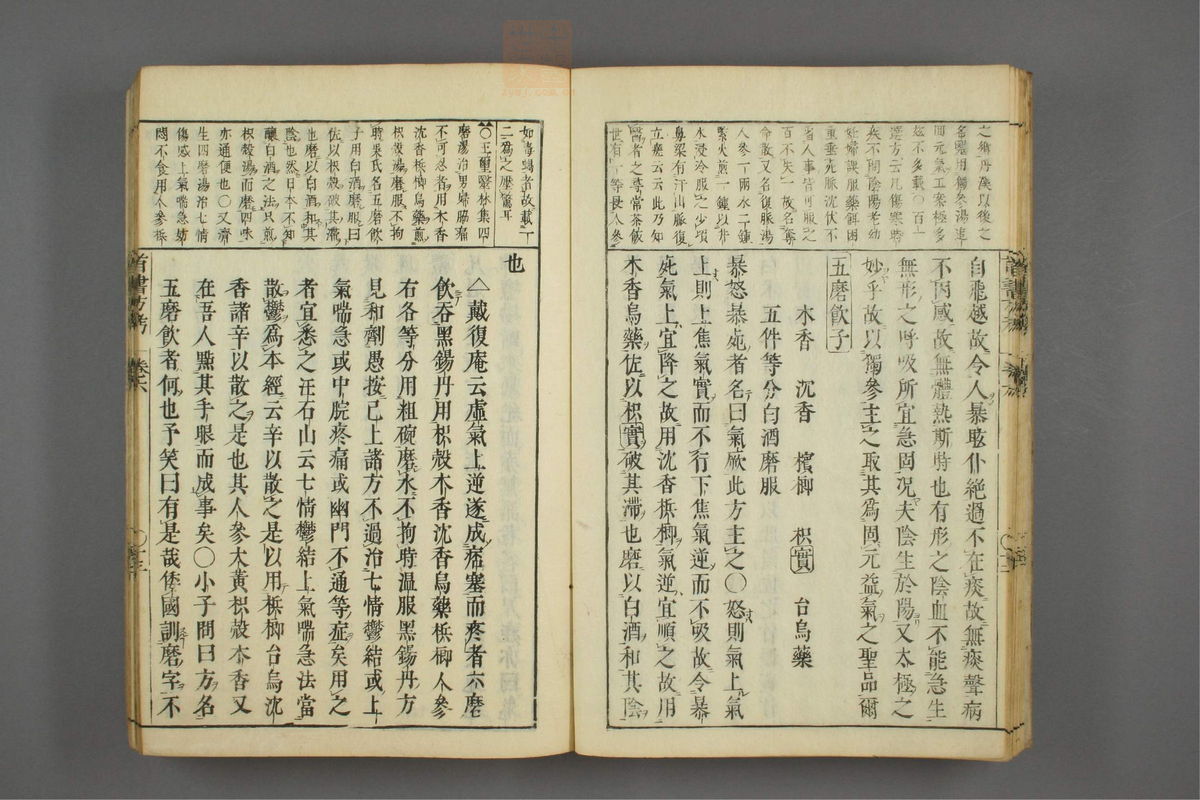 之鄉再候以後之
名曬用獨參湯進
間元氣工案極多
茲不多載〇百一
選方云凡傷寒時
疾不問陰陽老幼
妊婦誤服藥餌困
重垂死脈沈伏不
省人事皆可服之
百不失一故名奪
命散又名復脈湯
人參一兩水二鍾
緊火煎一鍾以井
水浸冷服之少頃
鼻梁有汗出脈復
立瘥云云此乃知
醫者之尋常茶飯
世有一等長人參
自飛越故令人暴眩仆絕過不在痰故無痰聲病
不因感故無體熱斯時也有形之陰血不能急生
無形之呼吸所宜急固况夫陰生於陽又太極之
妙乎故以獨參主之取其爲固元益氣之聖品爾
五磨飲子
木香 沉香 檳榔 枳實 台烏藥
五件等分白酒磨服
暴怒暴死者名曰氣厥此方主之〇怒則氣上氣
上則上焦氣實而不行下焦氣逆而不吸故令暴
死氣上宜降之故用沈香檳榔氣逆宜順之故用
木香烏藥佐以枳實破其滯也磨以白酒和其陰
如毒蝎者故載一
二爲之壓驚耳
〇王璽醫林集四
磨湯治男婦臟痛
不可忍者用木香
沈香檳榔烏藥煎
枳殼湯磨服不拘
時吴氏名五磨飲
子用白酒磨服曰
佐以枳殼破其滯
也磨以白酒和其
陰也然日本不知
釀白酒之法只煎
枳殼湯而磨四味
亦通便也〇又濟
生四磨湯治七情
傷感上氣喘急妨
悶不食用人參檳
也
△戴復庵云虛氣上逆遂成痞塞而疼者六磨
飲吞黑錫丹用枳殼木香沈香烏藥檳榔人參
右各等分用粗碗磨水不拘時温服黑錫丹方
見和劑愚按已上諸方不過治七情鬱結或上
氣喘急或中脘疼痛或幽門不通等症矣用之
者宜悉之汪石山云七情鬱結上氣喘急法當
散鬱爲本經云辛以散之是以用檳榔台烏沈
香諸辛以散之是也其人參大黃枳殼木香又
在吾人黙其手眼而成事矣〇小子問曰方名
五磨飲者何也予笑曰有是哉倭國訓磨字不
首書方考 卷六